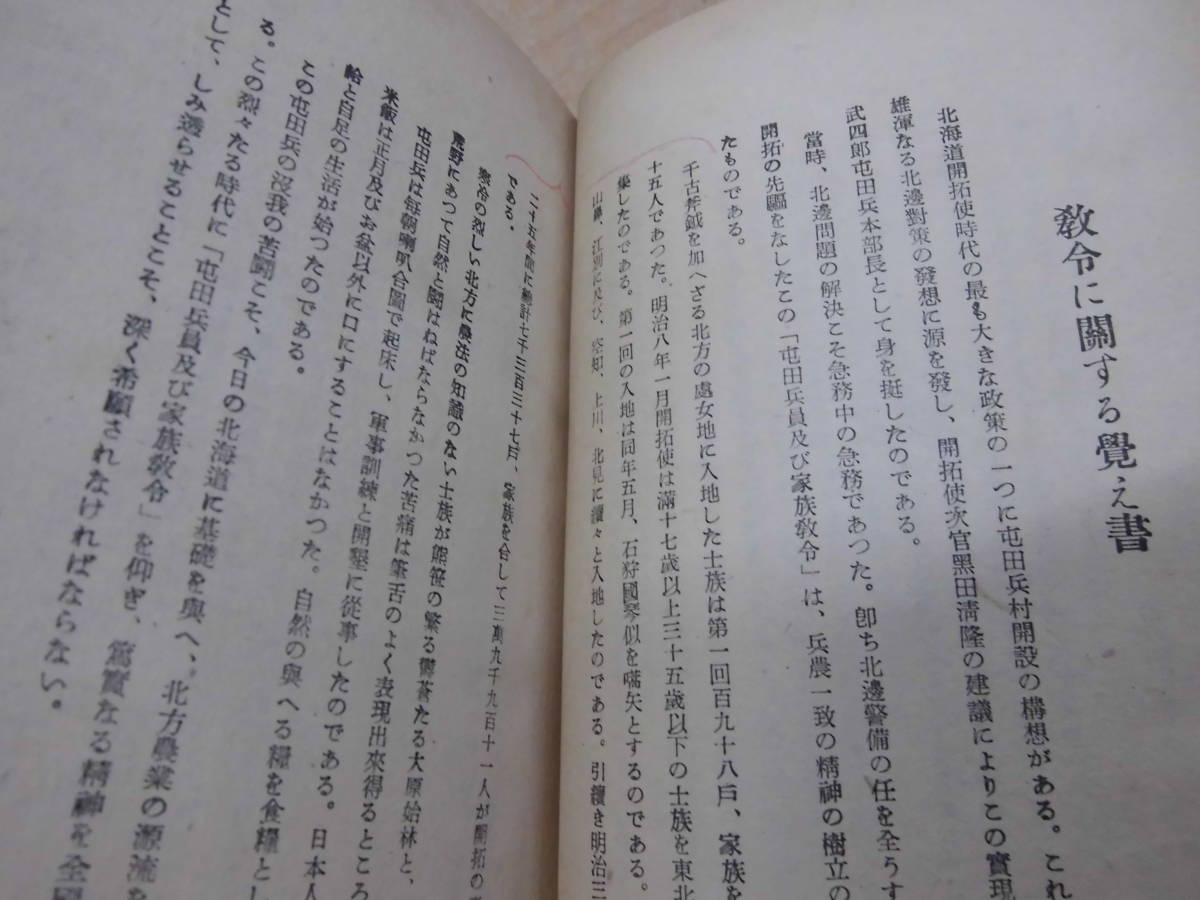 教令に關する覺え書
北海道開拓使時代の最も大きな政策の一つに屯田兵村開設の構想がある。これ
雄渾なる北邊對策の發想に源を發し、開拓使次官黑田淸隆の建議によりこの實現
武四郎屯田兵本部長として身を挺したのである。
當時、北邊問題の解決こそ急務中の急務であつた。卽ち北邊警備の任を全うす
開拓の先驅をなしたこの「屯田兵員及び家族敎令」は、兵農一致の精神の樹立の
たものである。
千古斧鉞を加へざる北方の處女地に入地した士族は第一回百九十八戶、家族を
十五人であつた。明治八年一月開拓使は滿十七歲以上三十五歲以下の士族を東北
集したのである。第一回の入地は同年五月、石狩國琴似を嚆矢とするのである。
山鼻、江別に及び、空知、上川、北見に續々と入地したのである。引續き明治三
二十五年間に總計七千三百三十七戶、家族を合して三萬九千九百十一人が開拓の
である。
寒冷の烈しい北方に農法の知識のない士族が熊笹の繁る鬱蒼たる大原始林と、
荒野にあつて自然と鬪はねばならなかつた苦痛は筆舌のよく表現出來得るところ
屯田兵は每朝喇叭合圖で起床し、軍事訓練と開墾に從事したのである。日本人
米飯は正月及びお盆以外に口にすることはなかつた。自然の與へる糧を食糧とし
給と自足の生活が始つたのである。
この屯田兵の沒我の苦鬪こそ、今日の北海道に基礎を與へ、北方農業の源流を
る。この烈々たる時代に「屯田兵員及び家族敎令」を仰ぎ、篤實なる精神を全國
として、しみ透らせることこそ、深く希願されなければならない。